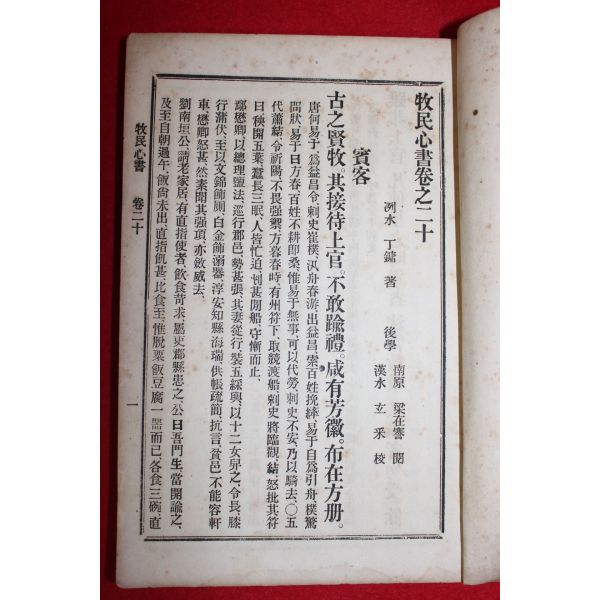 牧民心書卷之二十
洌水 丁鏞 著 後學
南原 梁在謇 閱
漢水 玄采 校
賓客
古之賢牧。其接待上官。不敢踰禮。咸有芳徽。布在方册。
唐何易于、爲益昌令、刺史崔樸、汎舟春游、出益昌、索百姓挽縴、易于自爲引舟、樸驚
問狀、易于曰方春、百姓不耕即桑、惟易于無事、可以代勞、刺史不安、乃以騎去、〇五
代蕭結、令祈陽、不畏强禦、方暮春時、有州符下、取競渡船、刺史將臨觀、結怒批其符
曰秧開五葉、蠶長三眠、人皆忙迫、刬甚閒船、守慚而止、
鄢懋卿、以總理鹽法、巡行郡邑、勢甚張、其妻從行、裝五綵輿、以十二女舁之、令長、膝
行蒲伏、至以文錦飾厠、白金飾溺器、淳安知縣海瑞、供帳疏簡、抗言、貧邑不能容軒
車、懋卿怒甚、然素聞其强項、亦斂威去、
劉南垣公、請老家居、有直指使者、飲食苛求、屬吏郡縣患之、公曰吾門生、當開諭之、
及至自朝過午、飯尙未出、直指飢甚、比食至、惟脫粟飯豆腐一器而已、各食三碗、直
牧民心書 卷二十 一